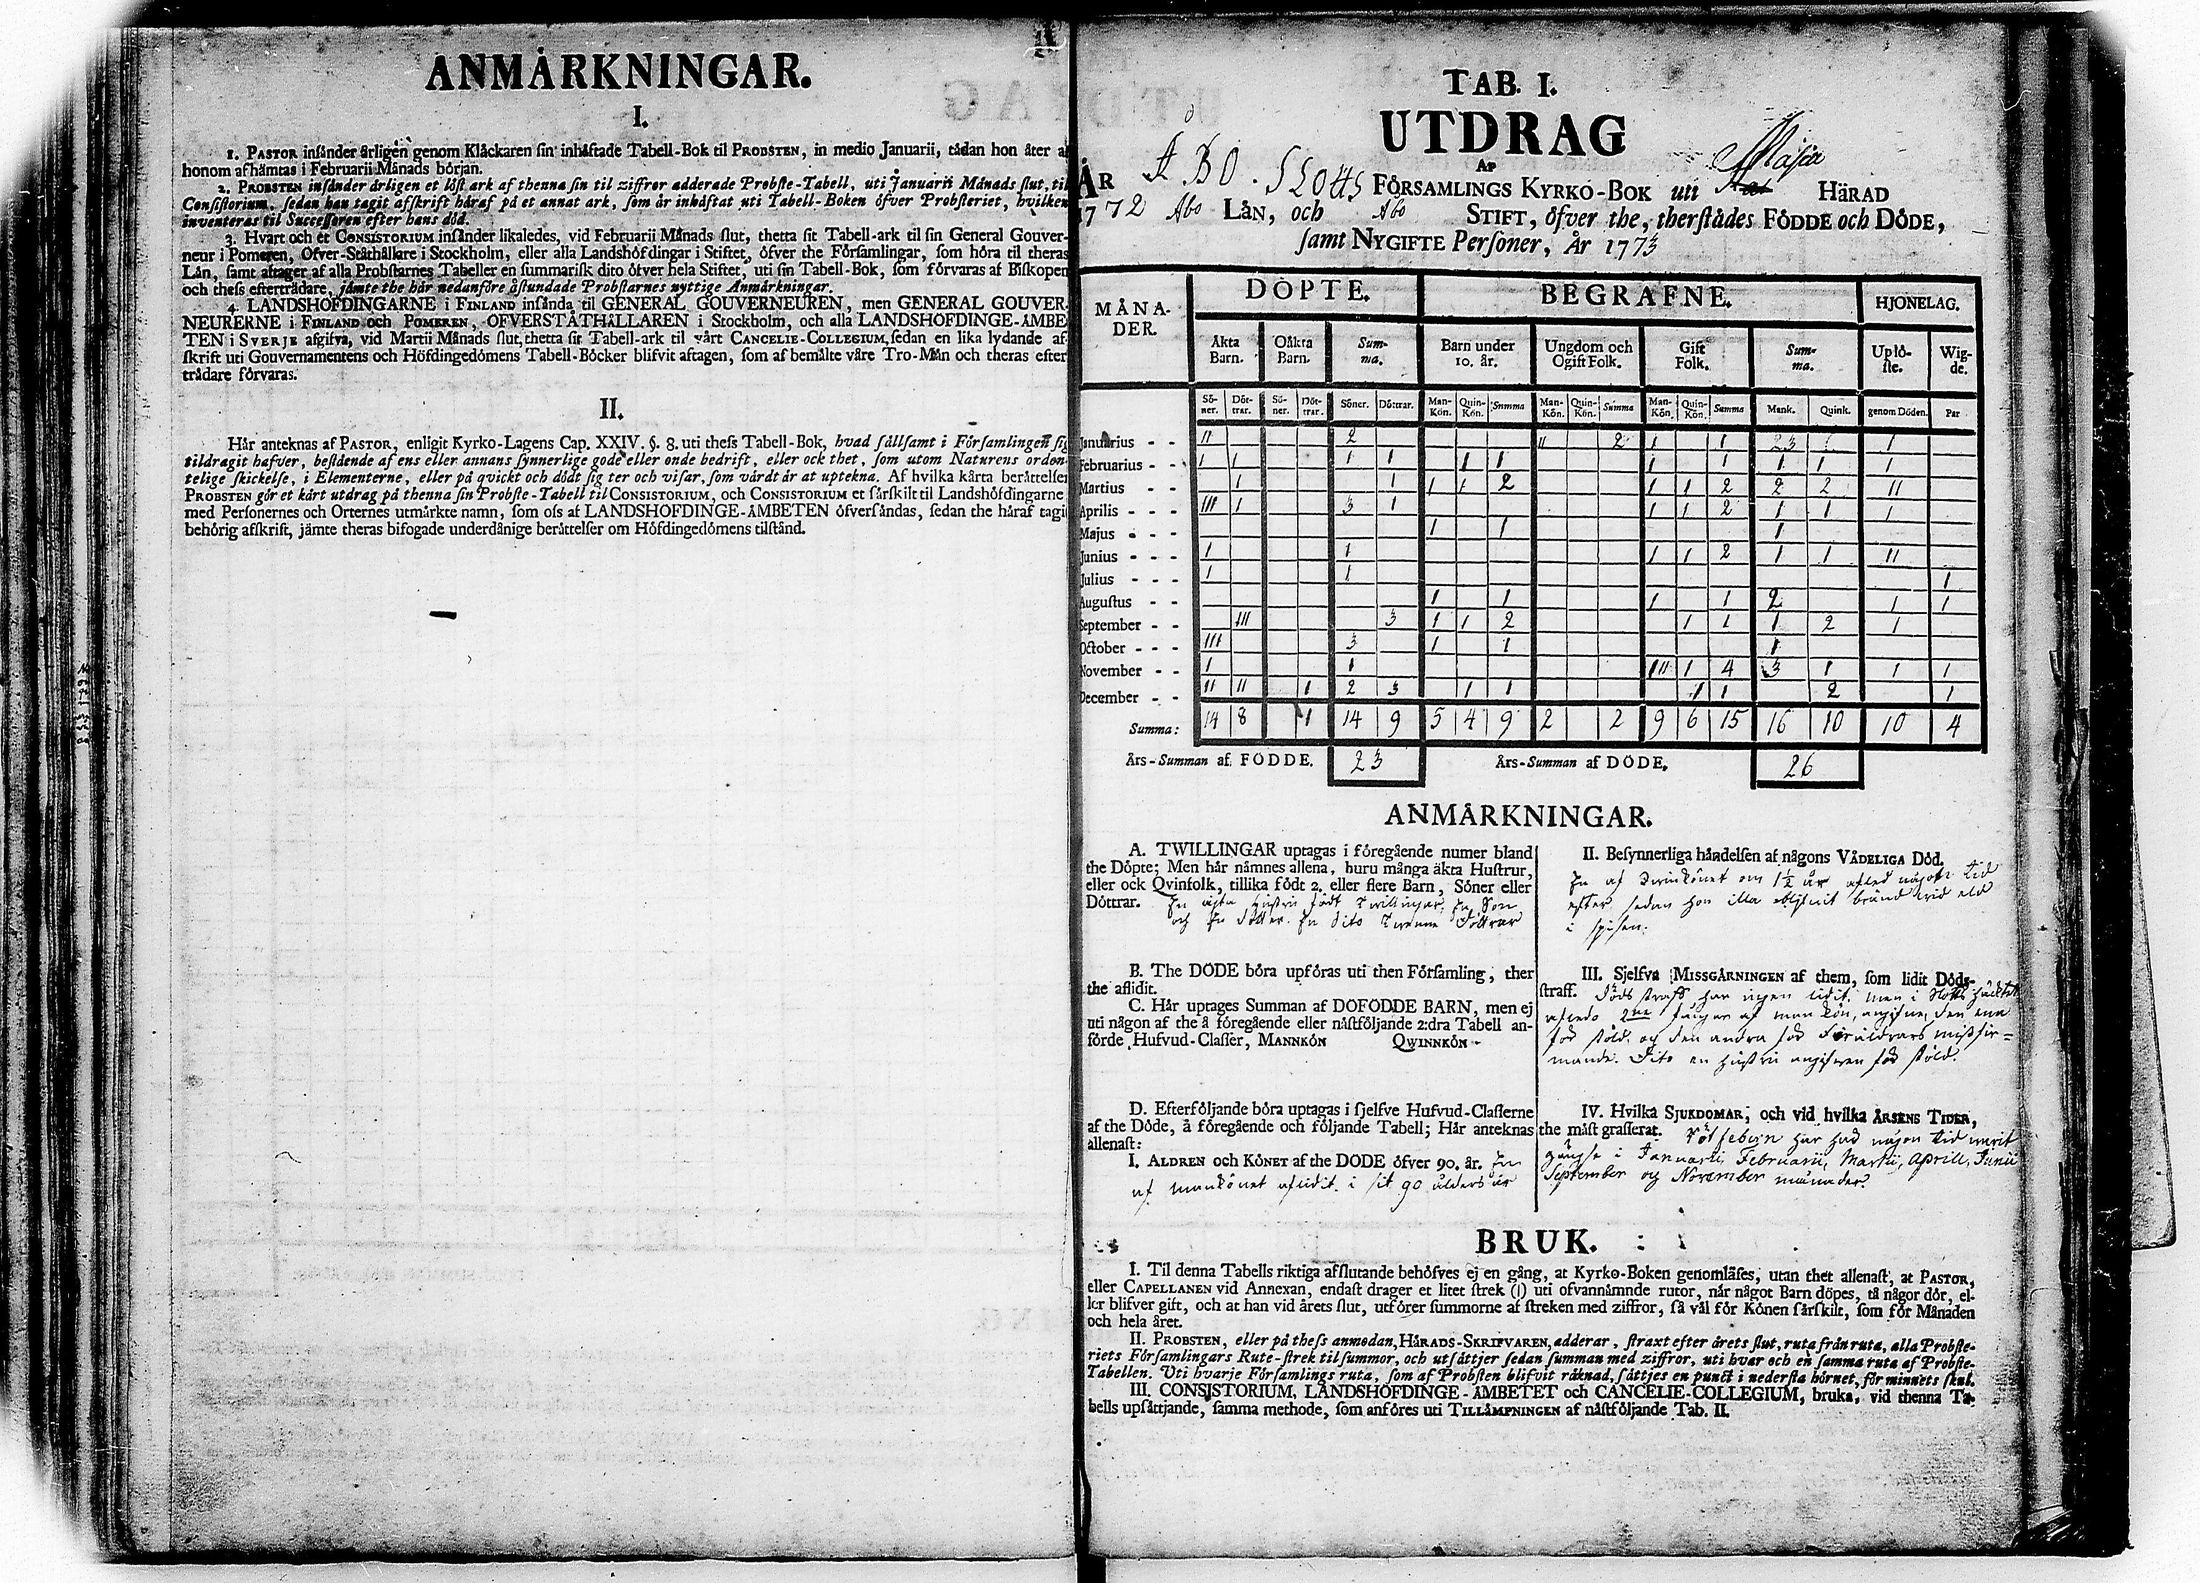 ANMÅRKNINGAR.
I.
1. PASTOR insånder årligen genom Klåckaren sin inhåftade Tabell-Bok til PROBSTEN, in medio Januarii, tådan hon åter af
honom afhåmtas i Februarii Månads början.
2. PROBSTEN insånder årligen et löst ark af thenna sin til ziffror adderade Probste-Tabell, uti Januarii Månads slut, til
Consistorium, sedan han tagit afskrift håraf på et annat ark, som år inhåftat uti Tabell-Boken öfver Probsteriet, hvilken
inventeras til Successoren efter hans död.
3. Hvart och et CONSISTORIUM insånder likaledes, vid Februarii Månads slut, thetta sit Tabell-ark til sin General Gouver-
neur i Pomeren, Öfver-Ståthållare i Stockholm, eller alla Landshöfdingar i Stiftet, öfver the Församlingar, som höra til theras
Lån, samt aftager af alla Probstarnes Tabeller en summarisk dito öfver hela Stiftet, uti sin Tabell-Bok, som förvaras af Biskopen
och thess eftertrådare, jåmte the hår nedanföre åstundade Probstarnes nyttige Anmårkningar.
4. LANDSHÖFDINGARNE i FINLAND insånda til GENERAL GOUVERNEUREN, men GENERAL GOUVER-
NEURERNE i FINLAND och POMEREN, ÖFVERSTÅTHÅLLAREN i Stockholm, och alla LANDSHÖFDINGE-ÅMBE-
TEN i SVERJE afgifva, vid Martii Månads slut, thetta sit Tabell-ark til vårt CANCELIE-COLLEGIUM, sedan en lika lydande af-
skrift uti Gouvernamentens och Höfdingedömens Tabell-Böcker blifvit aftagen, som af bemålte våre Tro-Mån och theras efter
trådare förvaras.
II.
Hår anteknas af PASTOR, enligit Kyrko-Lagens Cap. XXIV. §. 8. uti thess Tabell-Bok, hvad sållsamt i Församlingen sig
tildragit hafver, bestående af ens eller annans synnerlige gode eller onde bedrift, eller ock thet, som utom Naturens orden-
telige skickelse, i Elementerne, eller på qvickt och dödt sig ter och visar, som vårdt år at uptekna. Af hvilka kårta beråttelser
PROBSTEN gör et kårt utdrag på thenna sin Probste-Tabell til CONSISTORIUM, och CONSISTORIUM et sårskilt til Landshöfdingarne
med Personernes och Orternes utmårkte namn, som oss af LANDSHÖFDINGE-ÅMBETEN öfversåndas, sedan the håraf tagit
behörig afskrift, jåmte theras bifogade underdånige beråttelser om Höfdingedömens tilstånd.
TAB. I.
UTDRAG
AF
ÅR ÅBO SLOTTS FÖRSAMLINGS KYRKO-BOK uti Masku HÄRAD
1772 Åbo LÅN, och Åbo STIFT, öfver the, therstådes FÖDDE och DÖDE,
samt NYGIFTE Personer, År 1773
MÅNA-
DER. DÖPTE. BEGRAFNE. HJONELAG.
Åkta
Barn. Oåkta
Barn. Sum-
ma. Barn under
10. år. Ungdom och
Ogift Folk. Gift
Folk. Sum-
ma. Uplö-
ste. Wig-
de.
Sö-
ner. Döt-
trar. Sö-
ner. Döt-
trar. Söner. Döttrar. Man-
Kön. Quin-
Kön. Summa Man-
Kön. Quin-
Kön. Summa Man-
Kön. Quin-
Kön. Summa Mank. Quink. genom Döden. Par
Januarius - - II 2 II 2 1 1 1
Februarius - - I I 1 1 1 1 1 1 1 1 1
Martius - - I 1 1 1 2 1 1 2 2 2 II
Aprilis - - III I 3 1 1 1 2 1 1 1
Majus - - 1 1 1
Junius - - I 1 1 1 2 1 1 II
Julius - - - I 1 1
Augustus - - 1 1 1 1 2 1 1
September - - III 3 1 1 2 1 1 1 2 1
October - - - III 3 1 1 1
November - - I 1 III 1 4 3 1 1 1
December - - II II 1 2 3 1 1 1 1 2 1
Summa: 14 8 1 14 9 5 4 9 2 2 9 6 15 16 10 10 4
Års-Summan af FÖDDE. 23 Års-Summan af DÖDE, 26
ANMÅRKNINGAR.
A. TWILLINGAR uptagas i föregående numer bland
the Döpte; Men hår nåmnes allena, huru många äkta Hustrur,
eller ock Qvinfolk, tillika födt 2. eller flere Barn, Söner eller
Döttrar. En äkta Hustru födt Twillingar, En Son
och En Dotter. En dito Twenne Döttrar
B. The DÖDE böra upföras uti then Församling, ther
the aflidit.
C. Hår uptages Summan af DÖFÖDDE BARN, men ej
uti någon af the å föregående eller nåstföljande 2:dra Tabell an-
förde Hufvud-Classer, MANNKÖN QWINNKÖN
D. Efterföljande böra uptagas i sjelfve Hufvud-Classerne
af the Döde, å föregående och följande Tabell; Hår anteknas
allenast:
I. ÅLDREN och KÖNET af the DÖDE öfver 90. år. En
af mankönet aflidit i sit 90 ålders år
II. Besynnerliga håndelsen af någons VÅDELIGA Död.
En af Qwinkönet om 1½ år afled någon tid
efter, sedan hon illa blifwit bränd wid eld
i spisen.
III. Sjelfva MISSGÅRNINGEN af them, som lidit Döds-
straff. Dödsstraff har ingen lidit, men i Slotts häcktet
afledo 2ne fångar af mankön, angifne, den ena
för stöld, og den andra för Föräldrars missfir=
mande. Dito en hustru angifwen för stöld.
IV. Hvilka SJUKDOMAR, och vid hvilka ÅRSENS TIDER,
the måst grasserat. Rötfebern har hwad någon tid warit
gängse i Januarii, Februarii, Martii, Aprill, Junii
September og November månader.
BRUK.
I. Til denna Tabells riktiga afslutande behöfves ej en gång, at Kyrko-Boken genomläses, utan thet allenast, at PASTOR,
eller CAPELLANEN vid Annexan, endast drager et litet strek (|) uti ofvannåmnde rutor, når något Barn döpes, tå någor dör, el-
ler blifver gift, och at han vid årets slut, utförer summorne af streken med ziffror, så vål för Könen sårskilt, som för Månaden
och hela året.
II. PROBSTEN, eller på thess anmodan, HÅRADS-SKRIFVAREN, adderar, straxt efter årets slut, ruta från ruta, alla Probste-
riets Församlingars Rute-strek til summor, och utsåttjer sedan summan med ziffror, uti hvar och en samma ruta af Probste-
Tabellen. Uti hvarje Församlings ruta, som af Probsten blifvit råknad, såttjes en punct i nedersta hörnet, för minnets skul.
III. CONSISTORIUM, LANDSHÖFDINGE-ÅMBETET och CANCELIE-COLLEGIUM, bruka, vid thenna Ta-
bells upsåttjande, samma methode, som anföres uti TILLÅMPNINGEN af nåstföljande Tab. II.